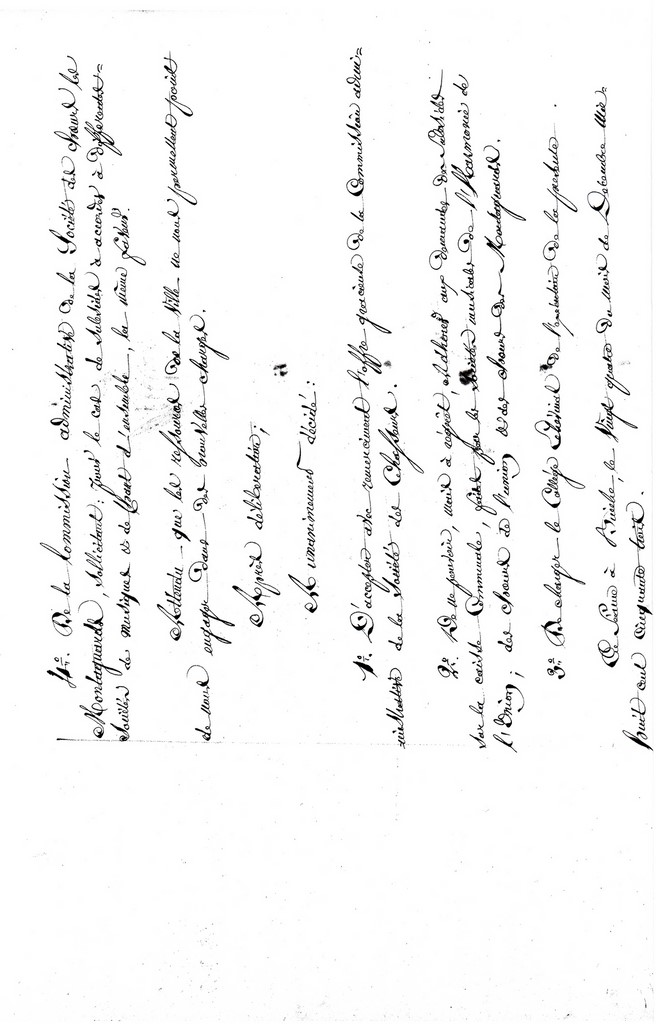 4° De la Commission administrative de la Société des chœurs les
Montagnards, sollicitant: pour le cas de subsides à accorder à différentes
Sociétés de musiques et de chant d'ensemble, la même faveur.
Attendu que les ressources de la Ville ne nous permettent point
de nous engager dans des nouvelles charges.
Après délibération;
A unanimement décidé:
1° D'accepter avec remerciement l'offre gracieuse de la Commission admi=
nistrative de la Société des Chasseurs.
2° De ne pouvoir, mais à regret, adhérer aux demandes des Subsides
sur la caisse Communale, faites par les Sociétés musicales de l'Harmonie de
l'Orion; des chœurs de l'union et des chœurs des Montagnards.
3° De charger le Collège Echevinal de l'exécution de la présente.
De Séance à Binche, le Vingt quatre du mois de Décembre Mil=
huit cent cinquante trois.